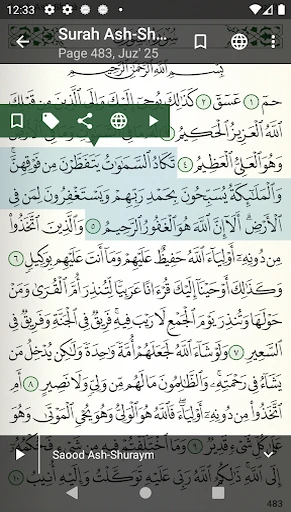 12:33
Surah Ash-Sh...
Page 483, Juz' 25
بِسْمِ ٱللَّهِ ٱلرَّحْمَٰنِ ٱلرَّحِيمِ
حمٓ ١ عٓسٓقٓ ٢ كَذَٰلِكَ يُوحِىٓ إِلَيْكَ وَإِلَى ٱلَّذِينَ مِن قَبْلِكَ
ٱللَّهُ ٱلْعَزِيزُ ٱلْحَكِيمُ
وَهُوَ ٱلْعَلِىُّ ٱلْعَظِيمُ ٤ تَكَادُ ٱلسَّمَٰوَٰتُ يَتَفَطَّرْنَ مِن فَوْقِهِنَّ
وَٱلْمَلَٰٓئِكَةُ يُسَبِّحُونَ بِحَمْدِ رَبِّهِمْ وَيَسْتَغْفِرُونَ لِمَن فِى
ٱلْأَرْضِ أَلَآ إِنَّ ٱللَّهَ هُوَ ٱلْغَفُورُ ٱلرَّحِيمُ ٥ وَٱلَّذِينَ ٱتَّخَذُوا۟
مِن دُونِهِۦٓ أَوْلِيَآءَ ٱللَّهُ حَفِيظٌ عَلَيْهِمْ وَمَآ أَنتَ عَلَيْهِم بِوَكِيلٍ ٦
وَكَذَٰلِكَ أَوْحَيْنَآ إِلَيْكَ قُرْءَانًا عَرَبِيًّا لِّتُنذِرَ أُمَّ ٱلْقُرَىٰ وَمَنْ
حَوْلَهَا وَتُنذِرَ يَوْمَ ٱلْجَمْعِ لَا رَيْبَ فِيهِ فَرِيقٌ فِى ٱلْجَنَّةِ وَفَرِيقٌ فِى
ٱلسَّعِيرِ ٧ وَلَوْ شَآءَ ٱللَّهُ لَجَعَلَهُمْ أُمَّةً وَٰحِدَةً وَلَٰكِن يُدْخِلُ مَن
يَشَآءُ فِى رَحْمَتِهِۦ وَٱلظَّٰلِمُونَ مَا لَهُم مِّن وَلِىٍّ وَلَا نَصِيرٍ ٨
أَمِ ٱتَّخَذُوا۟ مِن دُونِهِۦٓ أَوْلِيَآءَ فَٱللَّهُ هُوَ ٱلْوَلِىُّ وَهُوَ يُحْىِ ٱلْمَوْتَىٰ وَهُوَ
عَلَىٰ كُلِّ شَىْءٍ قَدِيرٌ ٩ وَمَا ٱخْتَلَفْتُمْ فِيهِ مِن شَىْءٍ فَحُكْمُهُۥٓ
Saood Ash-Shuraym
إِلَى ٱللَّهِ ذَٰلِكُمُ ٱللَّهُ رَبِّى عَلَيْهِ تَوَكَّلْتُ وَإِلَيْهِ أُنِيبُ ١٠
483